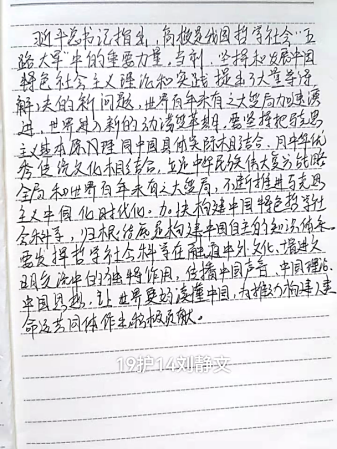 习近平总书记指出，高校是我国哲学社会"五
路大军"中的重要力量。当前，坚持和发展中国
特色社会主义理论和实践提出了大量亟待
解决的新问题，世界百年未有之大变局加速演
进，世界进入新的动荡变革期，要坚持把马克思
主义基本原理同中国具体实际相结合、同中华优
秀传统文化相结合，立足中华民族伟大复兴战略
全局和世界百年未有之大变局，不断推进马克思
主义中国化时代化。加快构建中国特色哲学社
会科学，归根结底是构建中国自主的知识体系。
要发挥哲学社会科学在融通中外文化、增进文
明交流中的独特作用，传播中国声音、中国理论、
中国思想，让世界更好读懂中国，为推动构建人类
命运共同体作出积极贡献。
19护14刘静文